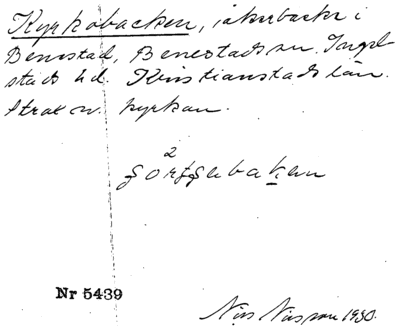 Kyrkobacken, åkerbacke i
Benestad, Benestads sn. Ingel-
stads hd. Kristianstads län.
Strax n. kyrkan.
Nr 5439
Nils Nilsson 1930.